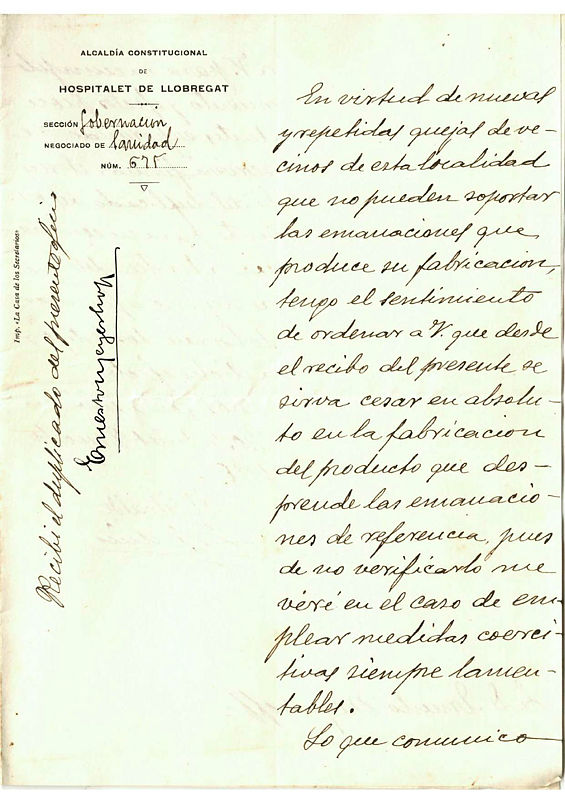 ALCALDÍA CONSTITUCIONAL
DE
HOSPITALET DE LLOBREGAT
SECCIÓN Gobernación
NEGOCIADO DE Sanidad
NÚM. 675
Imp. «La Casa de los Secretarios»
Recibí el duplicado del presente oficio
Ernesto Meyerhoff
En virtud de nuevas
y repetidas quejas de ve-
cinos de esta localidad
que no pueden soportar
las emanaciones que
produce su fabricacion,
tengo el sentimiento
de ordenar a V. que desde
el recibo del presente se
sirva cesar en absolu-
to en la fabricacion
del producto que des-
prende las emanacio-
nes de referencia, pues
de no verificarlo me
veré en el caso de em-
plear medidas coerci-
tivas siempre lamen-
tables.
Lo que comunico